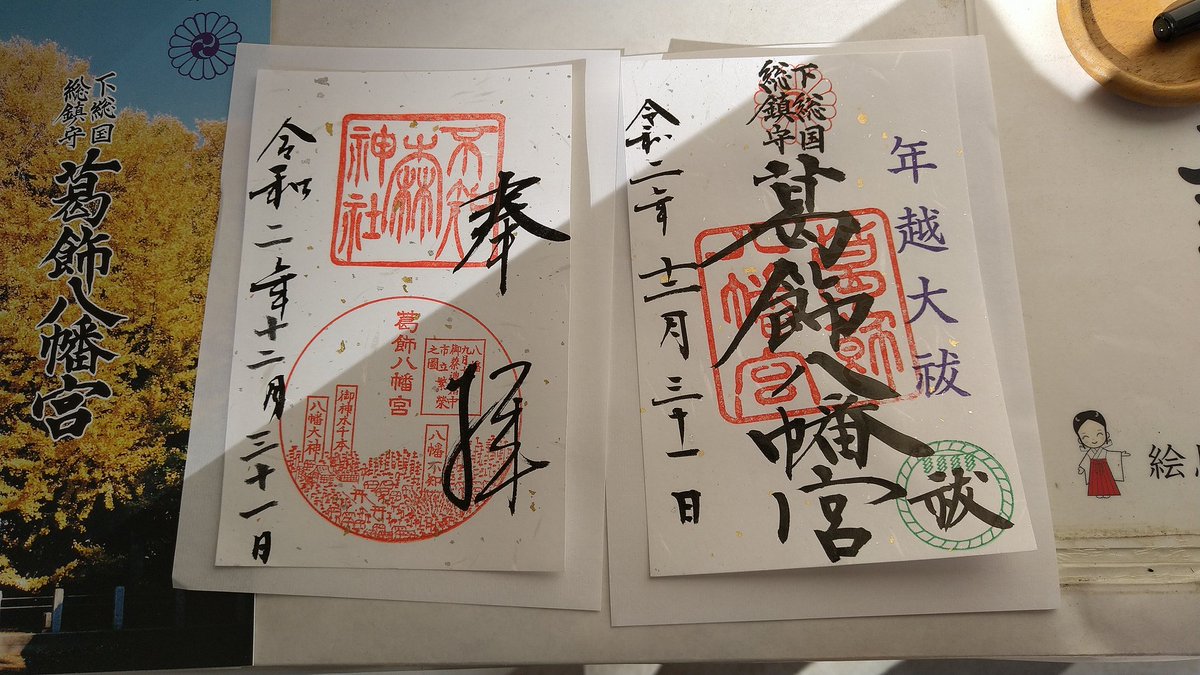 下総国
総鎮守
葛飾八幡宮
奉拝
不知
森
神社
葛飾八幡宮
八幡
九月
市立
之圖
繁榮
御神木千本
八幡大神
八幡不知
令和二年十二月三十一日
年越大祓
下総国
総鎮守
葛飾八幡宮
葛飾
八幡宮
祓
令和二年十二月三十一日
絵